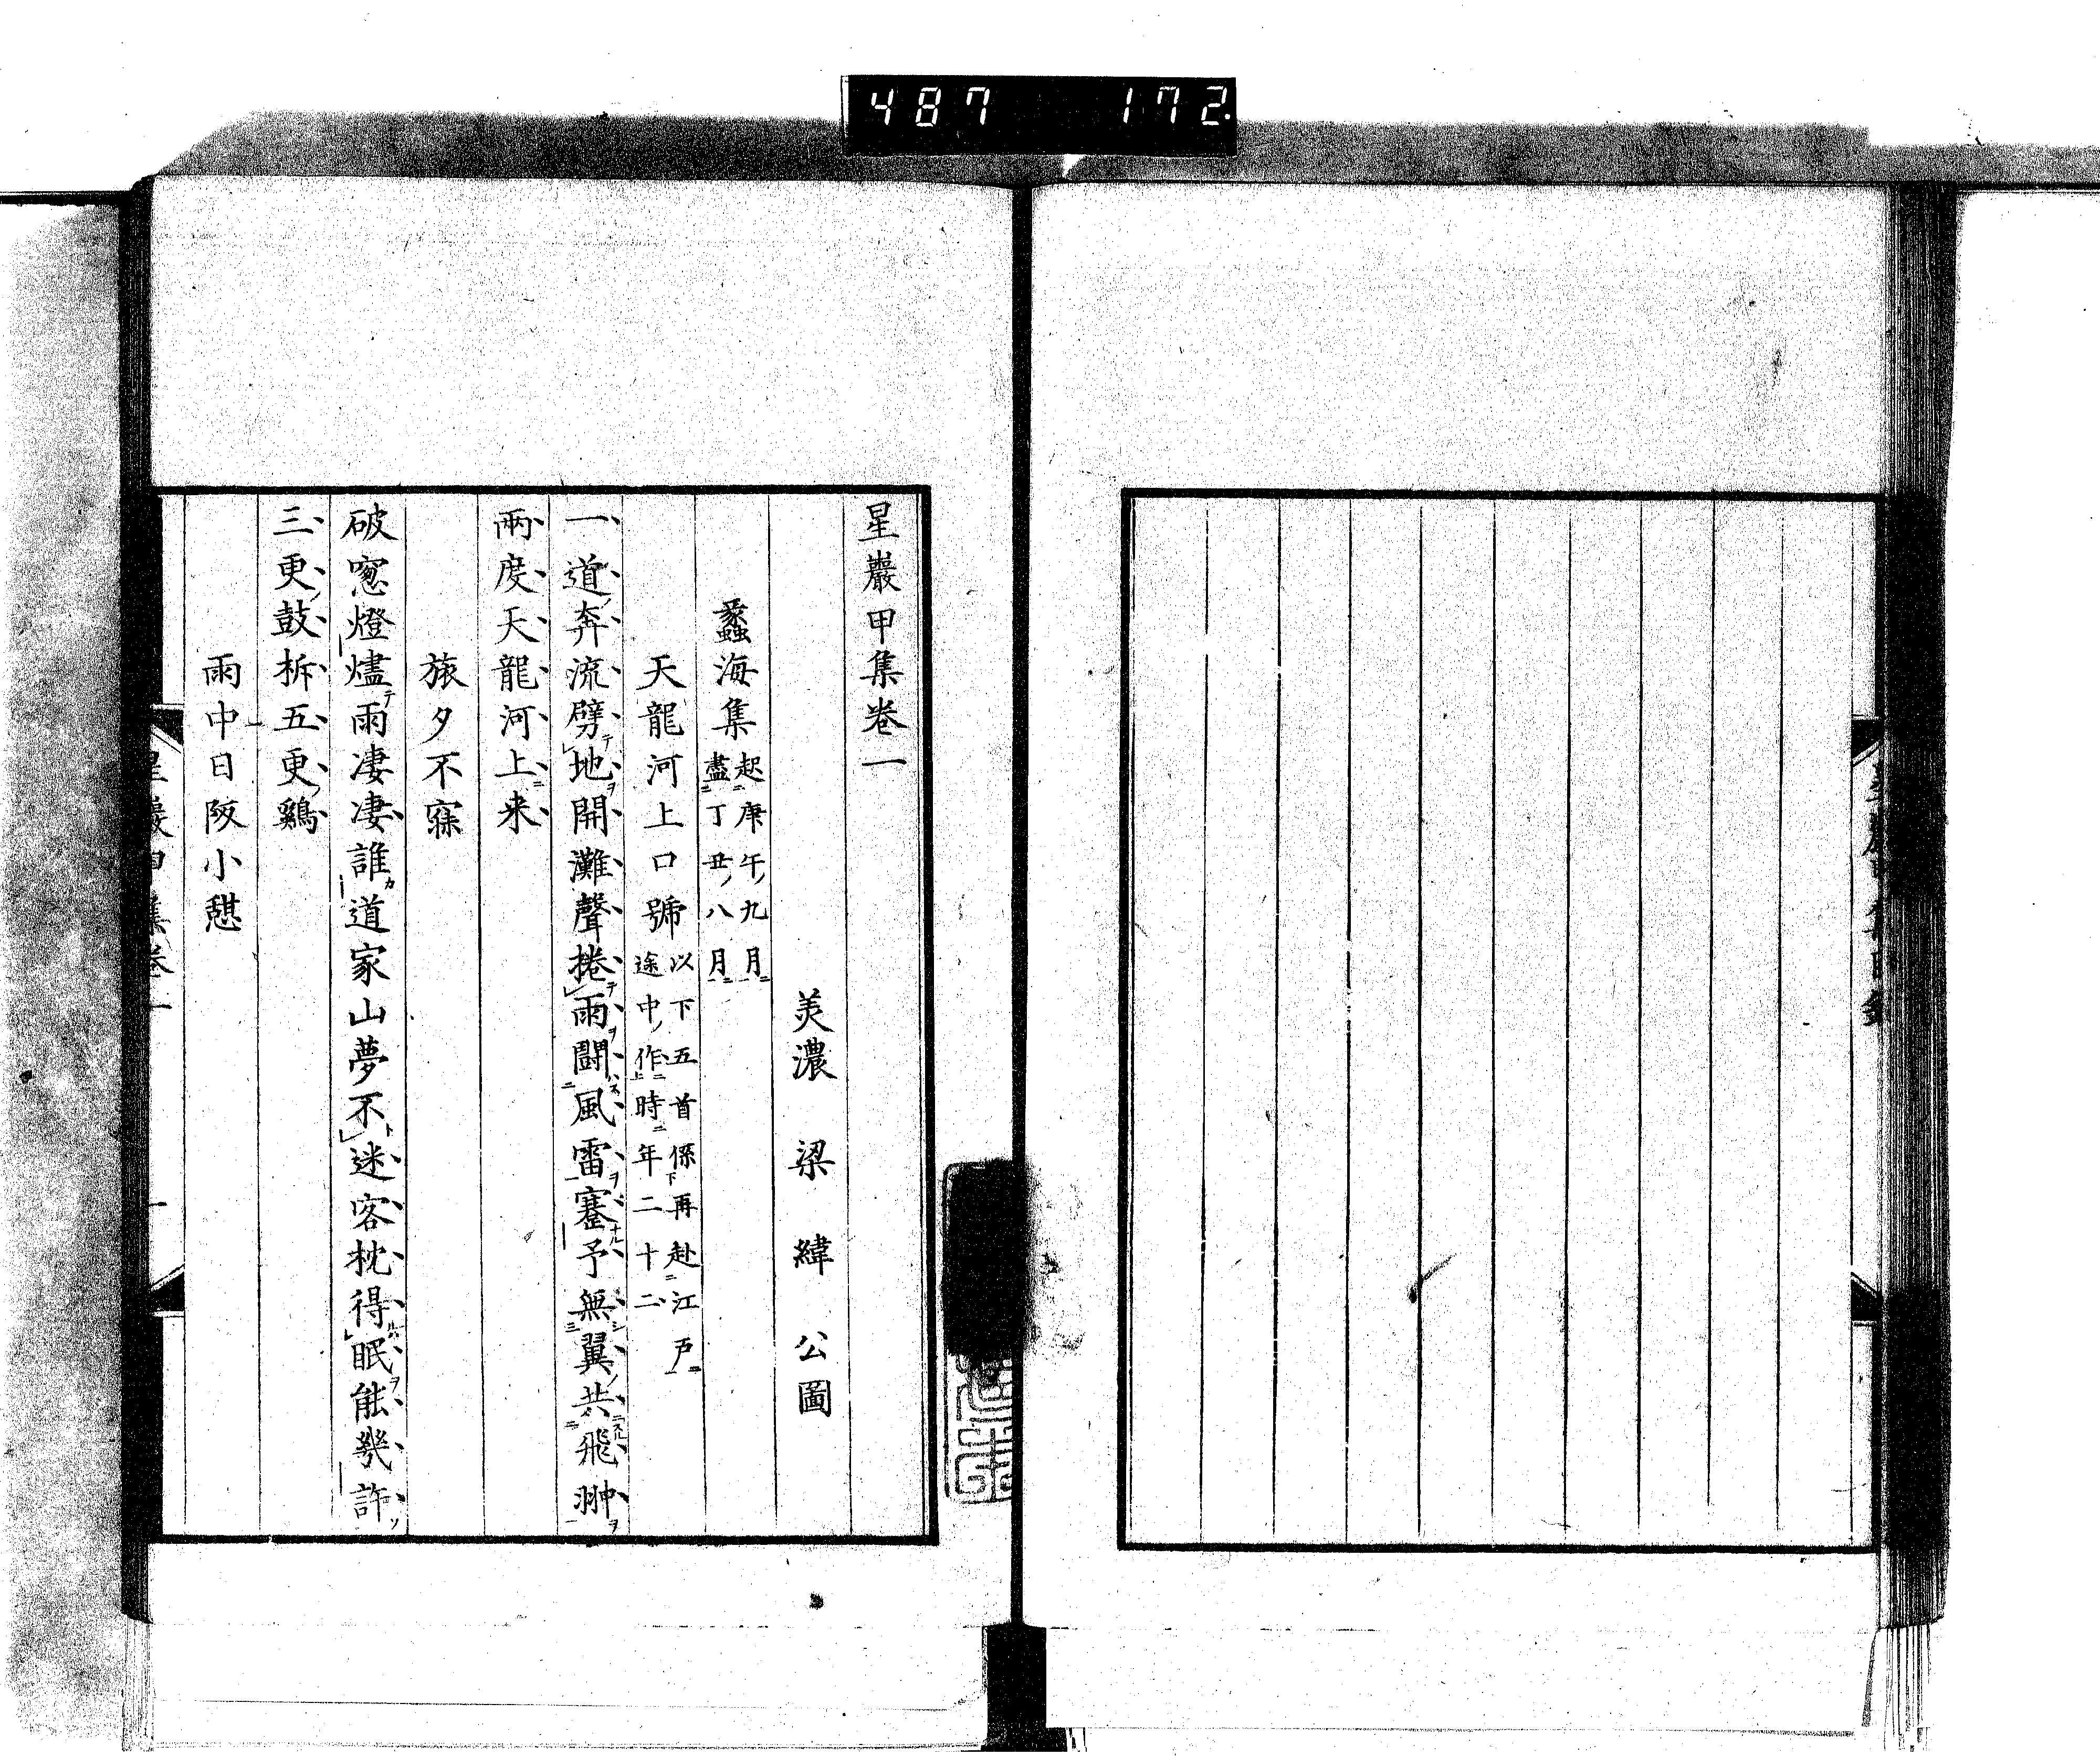 487 172
星巖甲集卷一
美濃 梁 緯 公圖
蠡海集 起庚午九月
盡丁丑八月
天龍河上口號 以下五首係再赴江戸
途中作時年二十二
一道奔流劈地開灘聲捲雨鬪風雷蹇予無翼共飛翀
兩度天龍河上来
旅夕不寐
破窻燈燼雨凄凄誰道家山夢不迷客枕得眠能幾許
三更鼓柝五更鷄
雨中日阪小憇
星巖甲集卷一
一